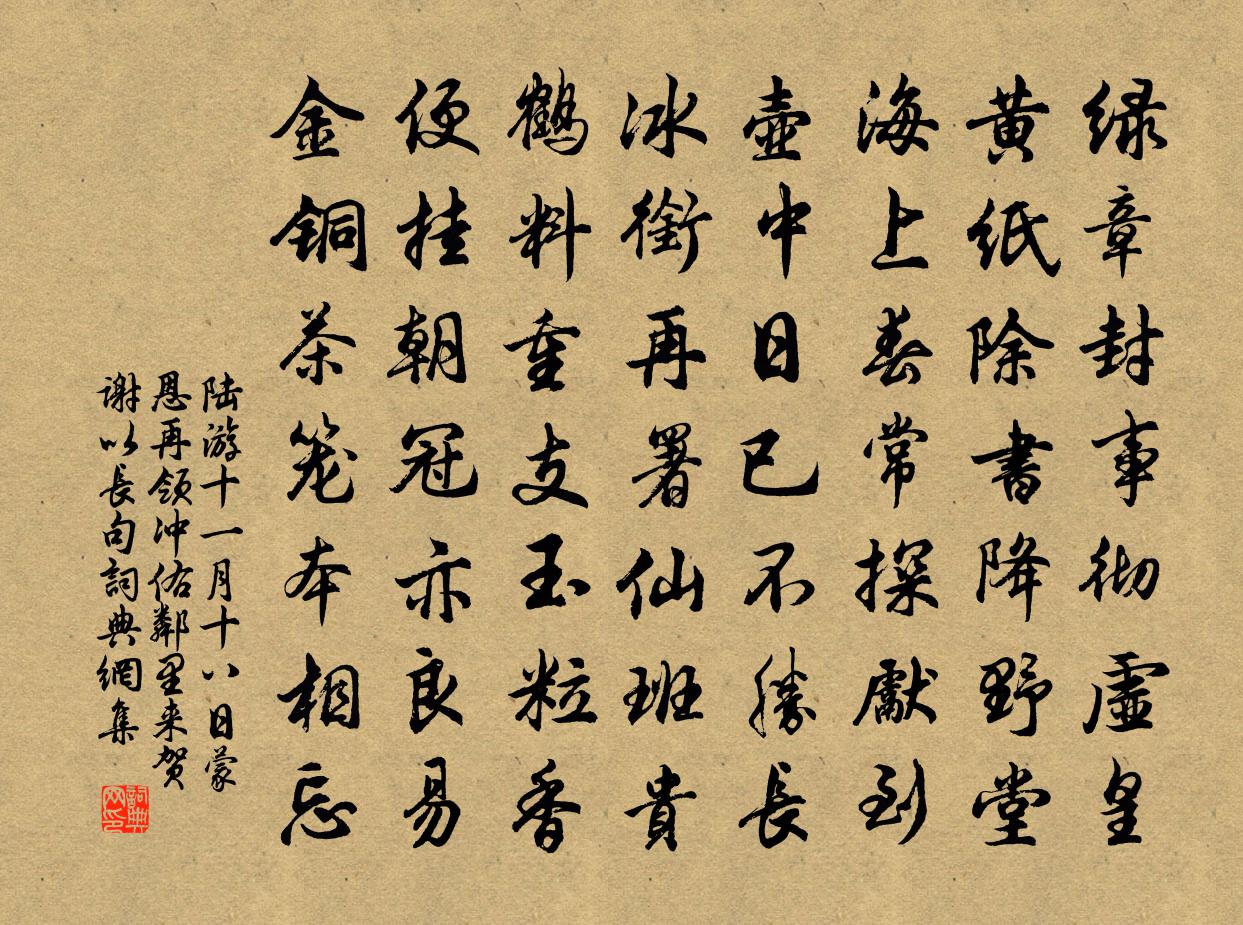 绿章封事彻虚皇
黄纸除書降野堂
海上春常探献到
壶中日已不勝長
冰衔再署仙班貴
鹤料重支玉粒香
便挂朝冠亦良易
金铜茶笼本相忘
陆游十一月十八日蒙
恩再领冲佑鄰里来贺
谢以長句詞典網集
詞典网印